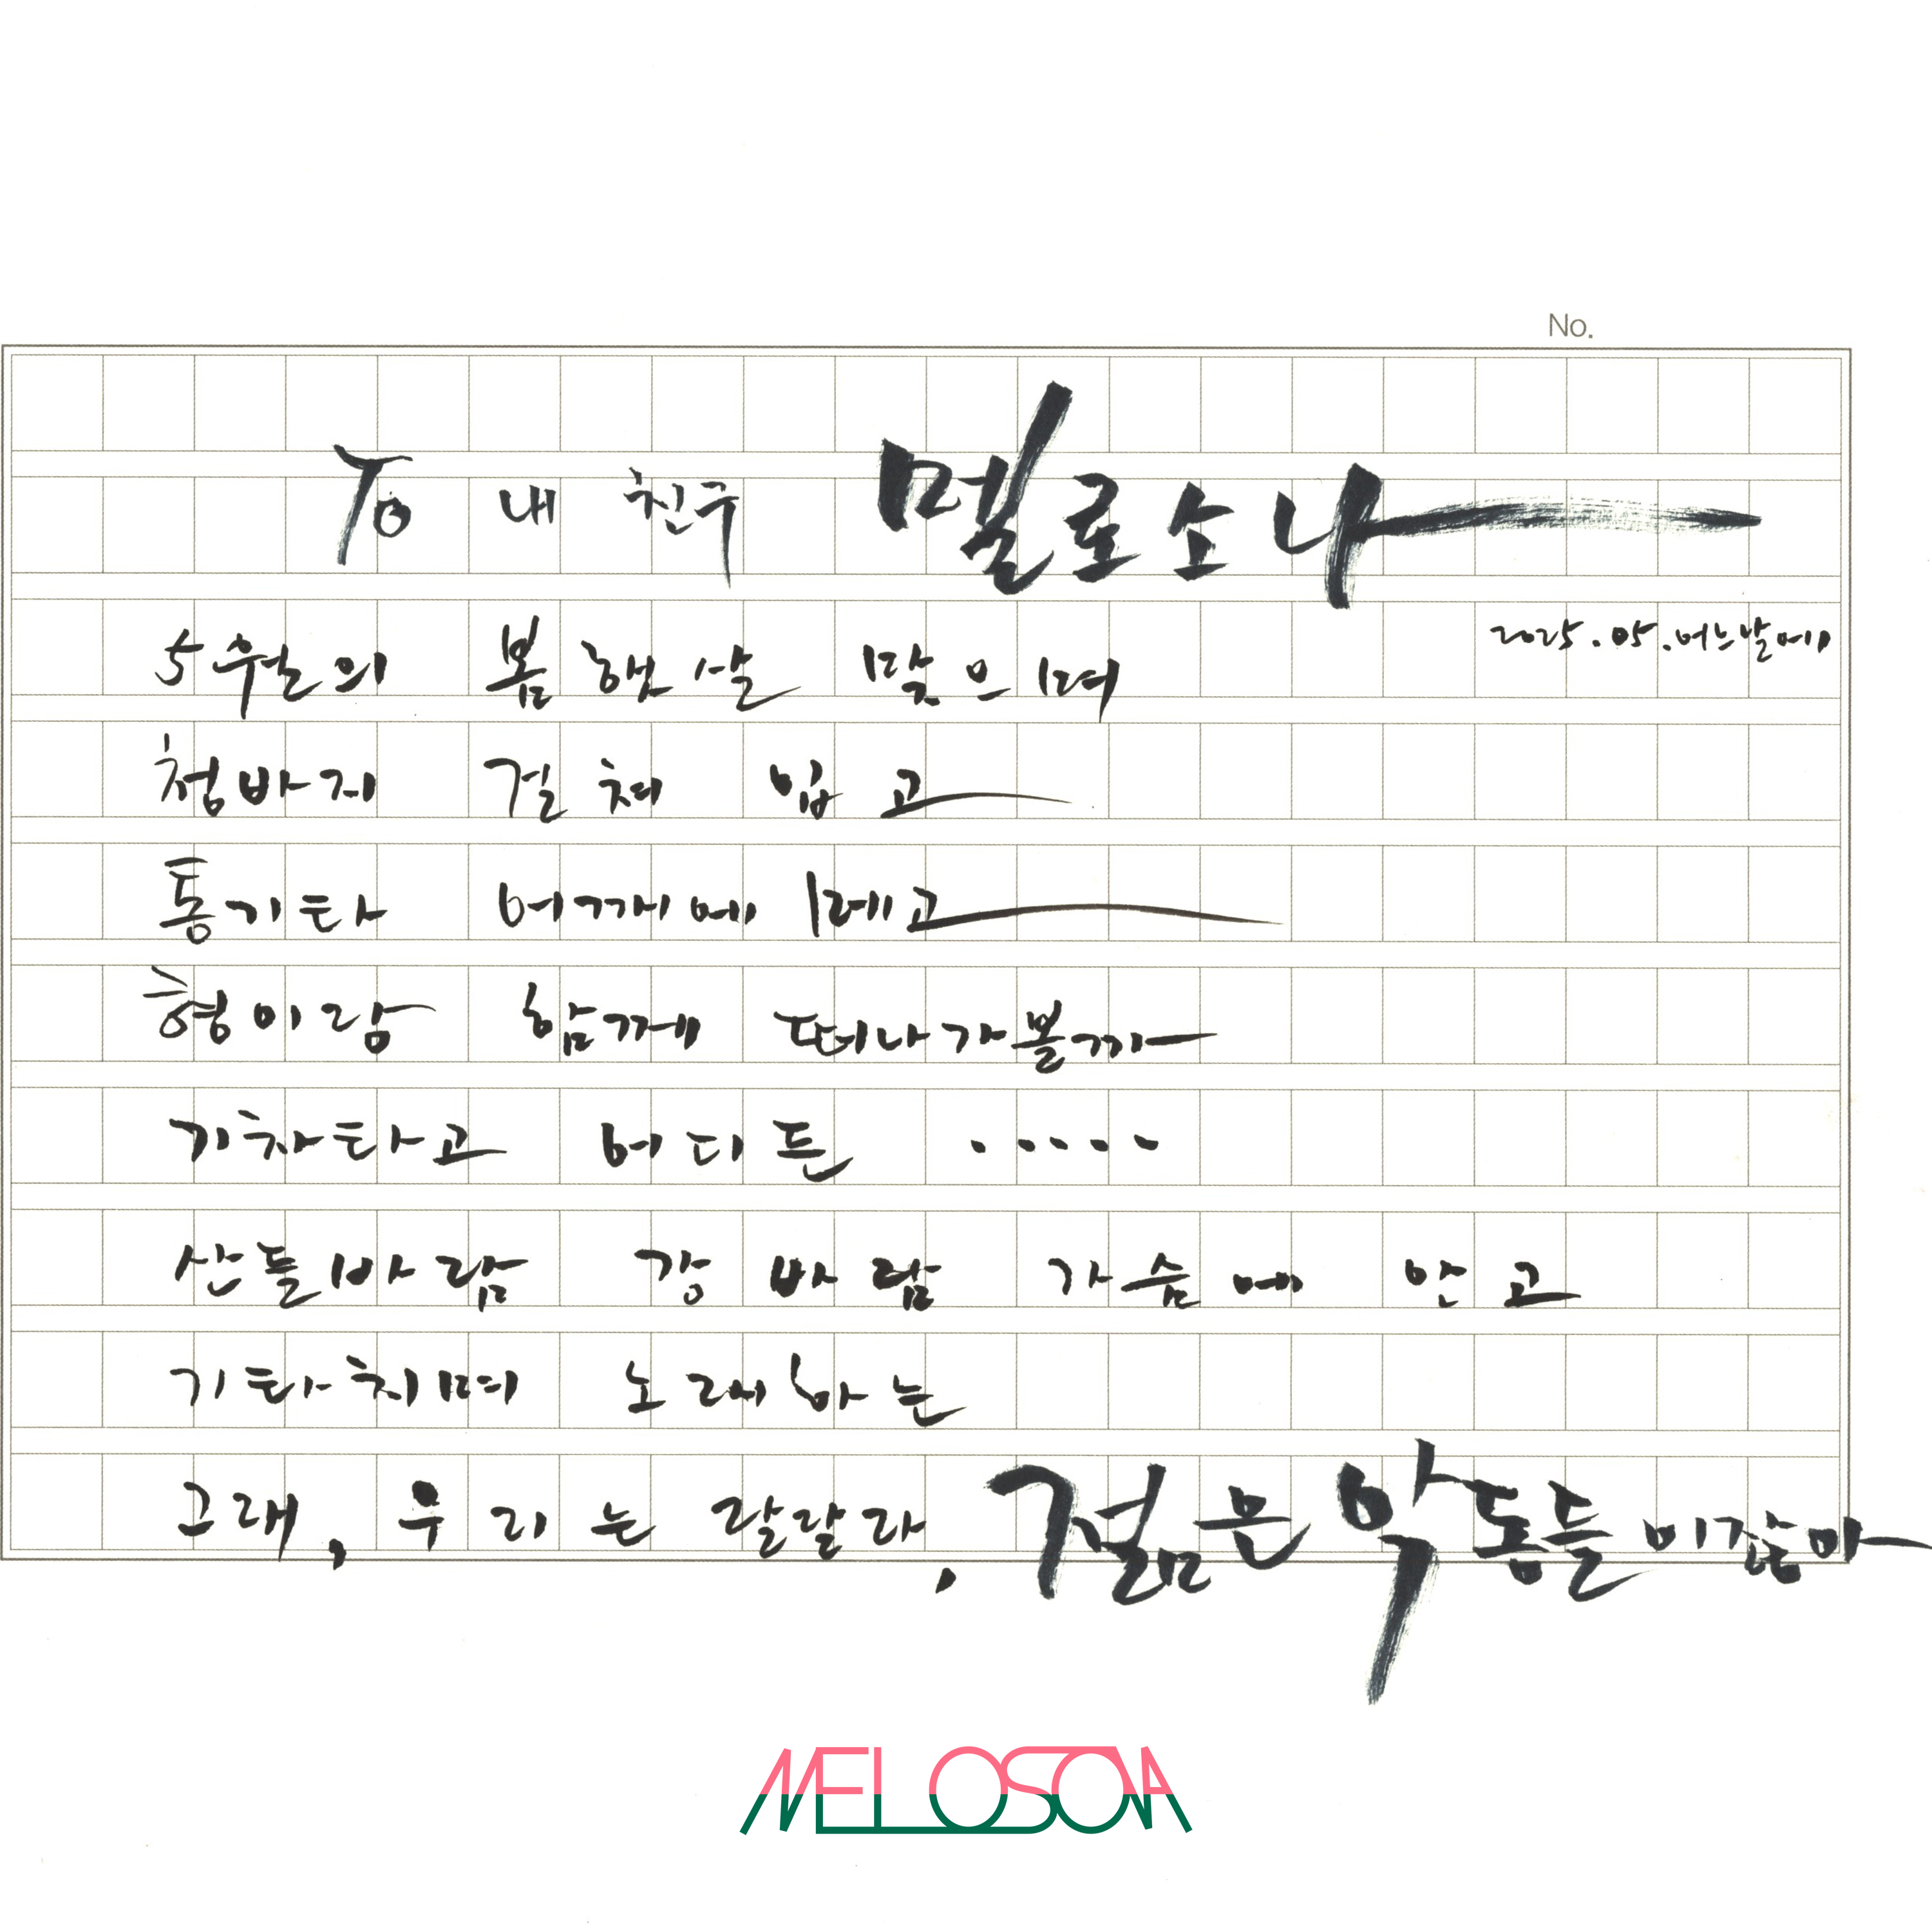 No.
To 내 친구 멜로소나
2025.05.어느날에
5월의 봄 햇살 맞으며
청바지 걸쳐 입고
통기타 어깨에 메고
형이랑 함께 떠나가볼까
기차타고 어디든 .....
산들바람 강바람 가슴에 안고
기타치며 노래하는
그래, 우리는 랄랄라, 젊은 악동들 이잖아
MELOSONA